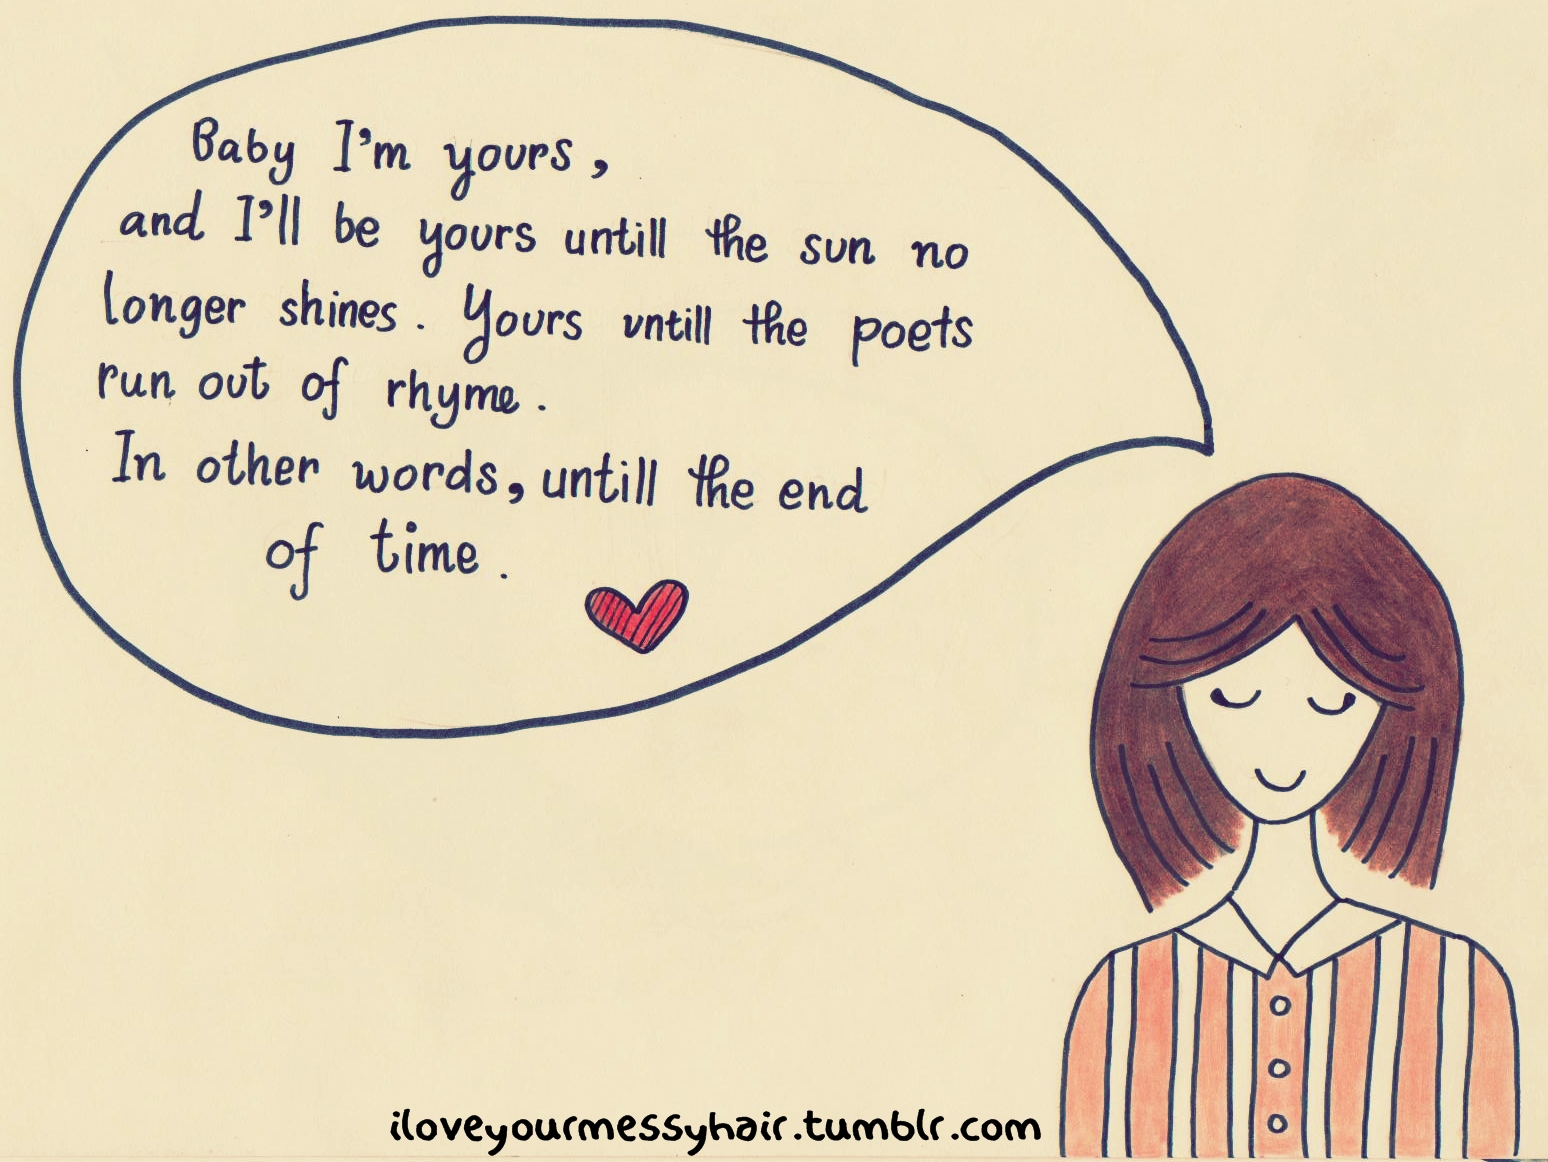 Baby I'm yours,
and I'll be yours untill the sun no
longer shines. Yours untill the poets
run out of rhyme.
In other words, untill the end
of time.
iloveyourmessyhair.tumblr.com